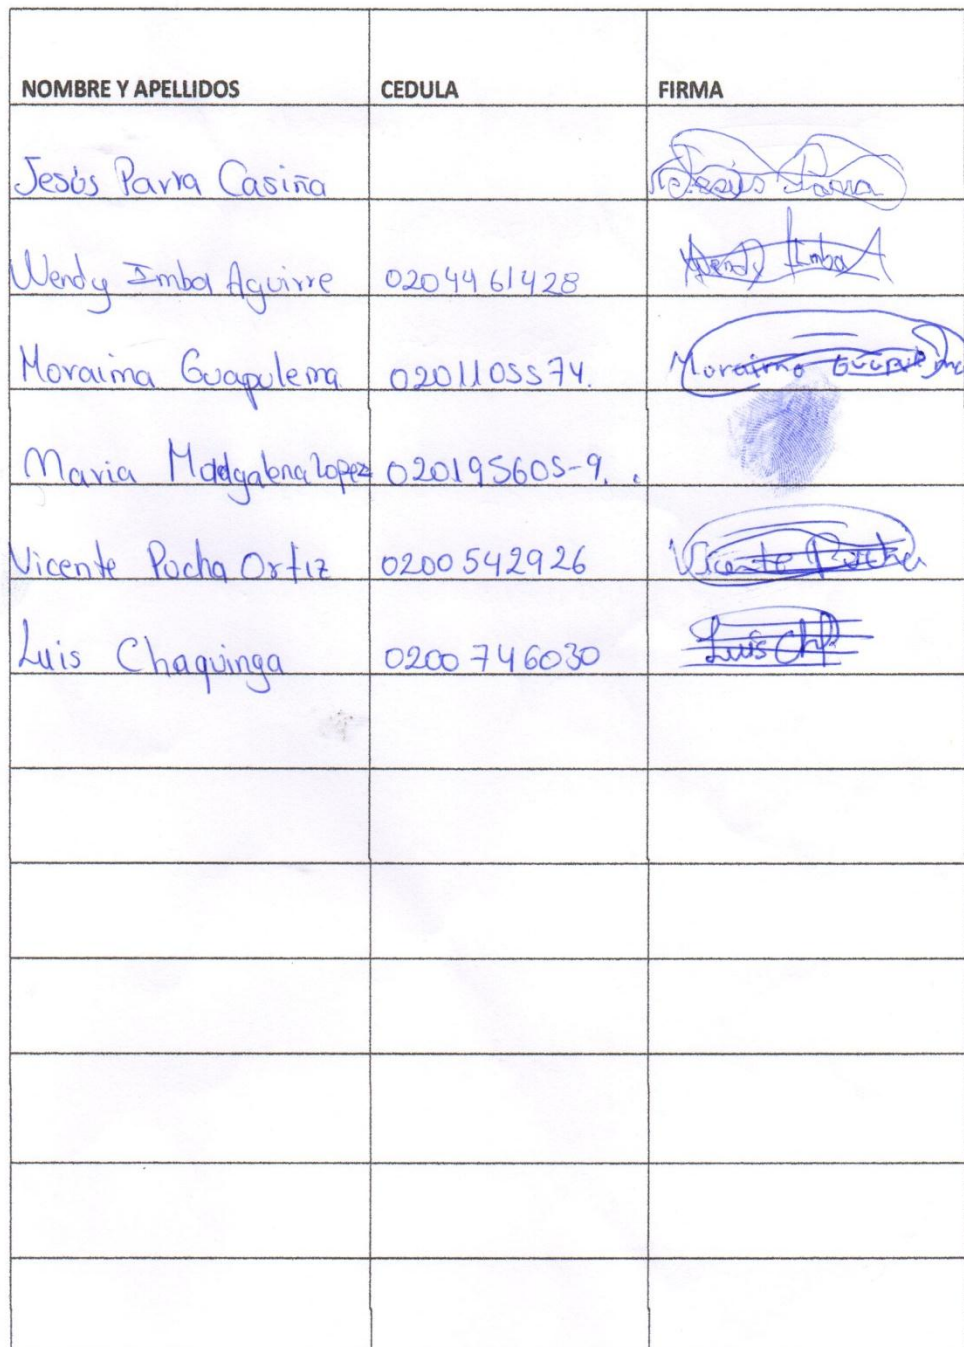 NOMBRE Y APELLIDOS CEDULA FIRMA
Jesús Parra Casiña Jesús Parra
Wendy Imba Aguirre 0204461428 Wendy Imba A
Moraima Guapulema 0201105574. Moraima Guapulema
Maria Madgalena Lopez 020195605-9. .
Vicente Pucha Ortiz 0200542926 Vicente Pucha
Luis Chaquinga 0200746030 Luis Ch